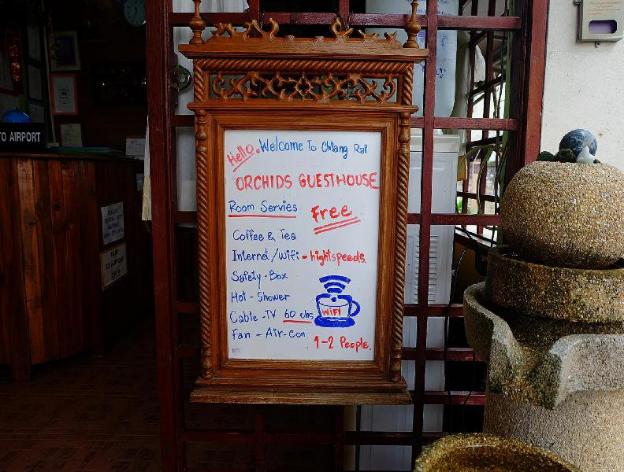 TO AIRPORT
Hello. Welcome To Chiang Rai
ORCHIDS GUESTHOUSE
Room Servies Free
Coffee & Tea
Internet/Wifi - hightspeeds.
Safety-Box
Hot - Shower
Cable - TV 60 chs
WiFi
Fan - Air-con 1-2 People.